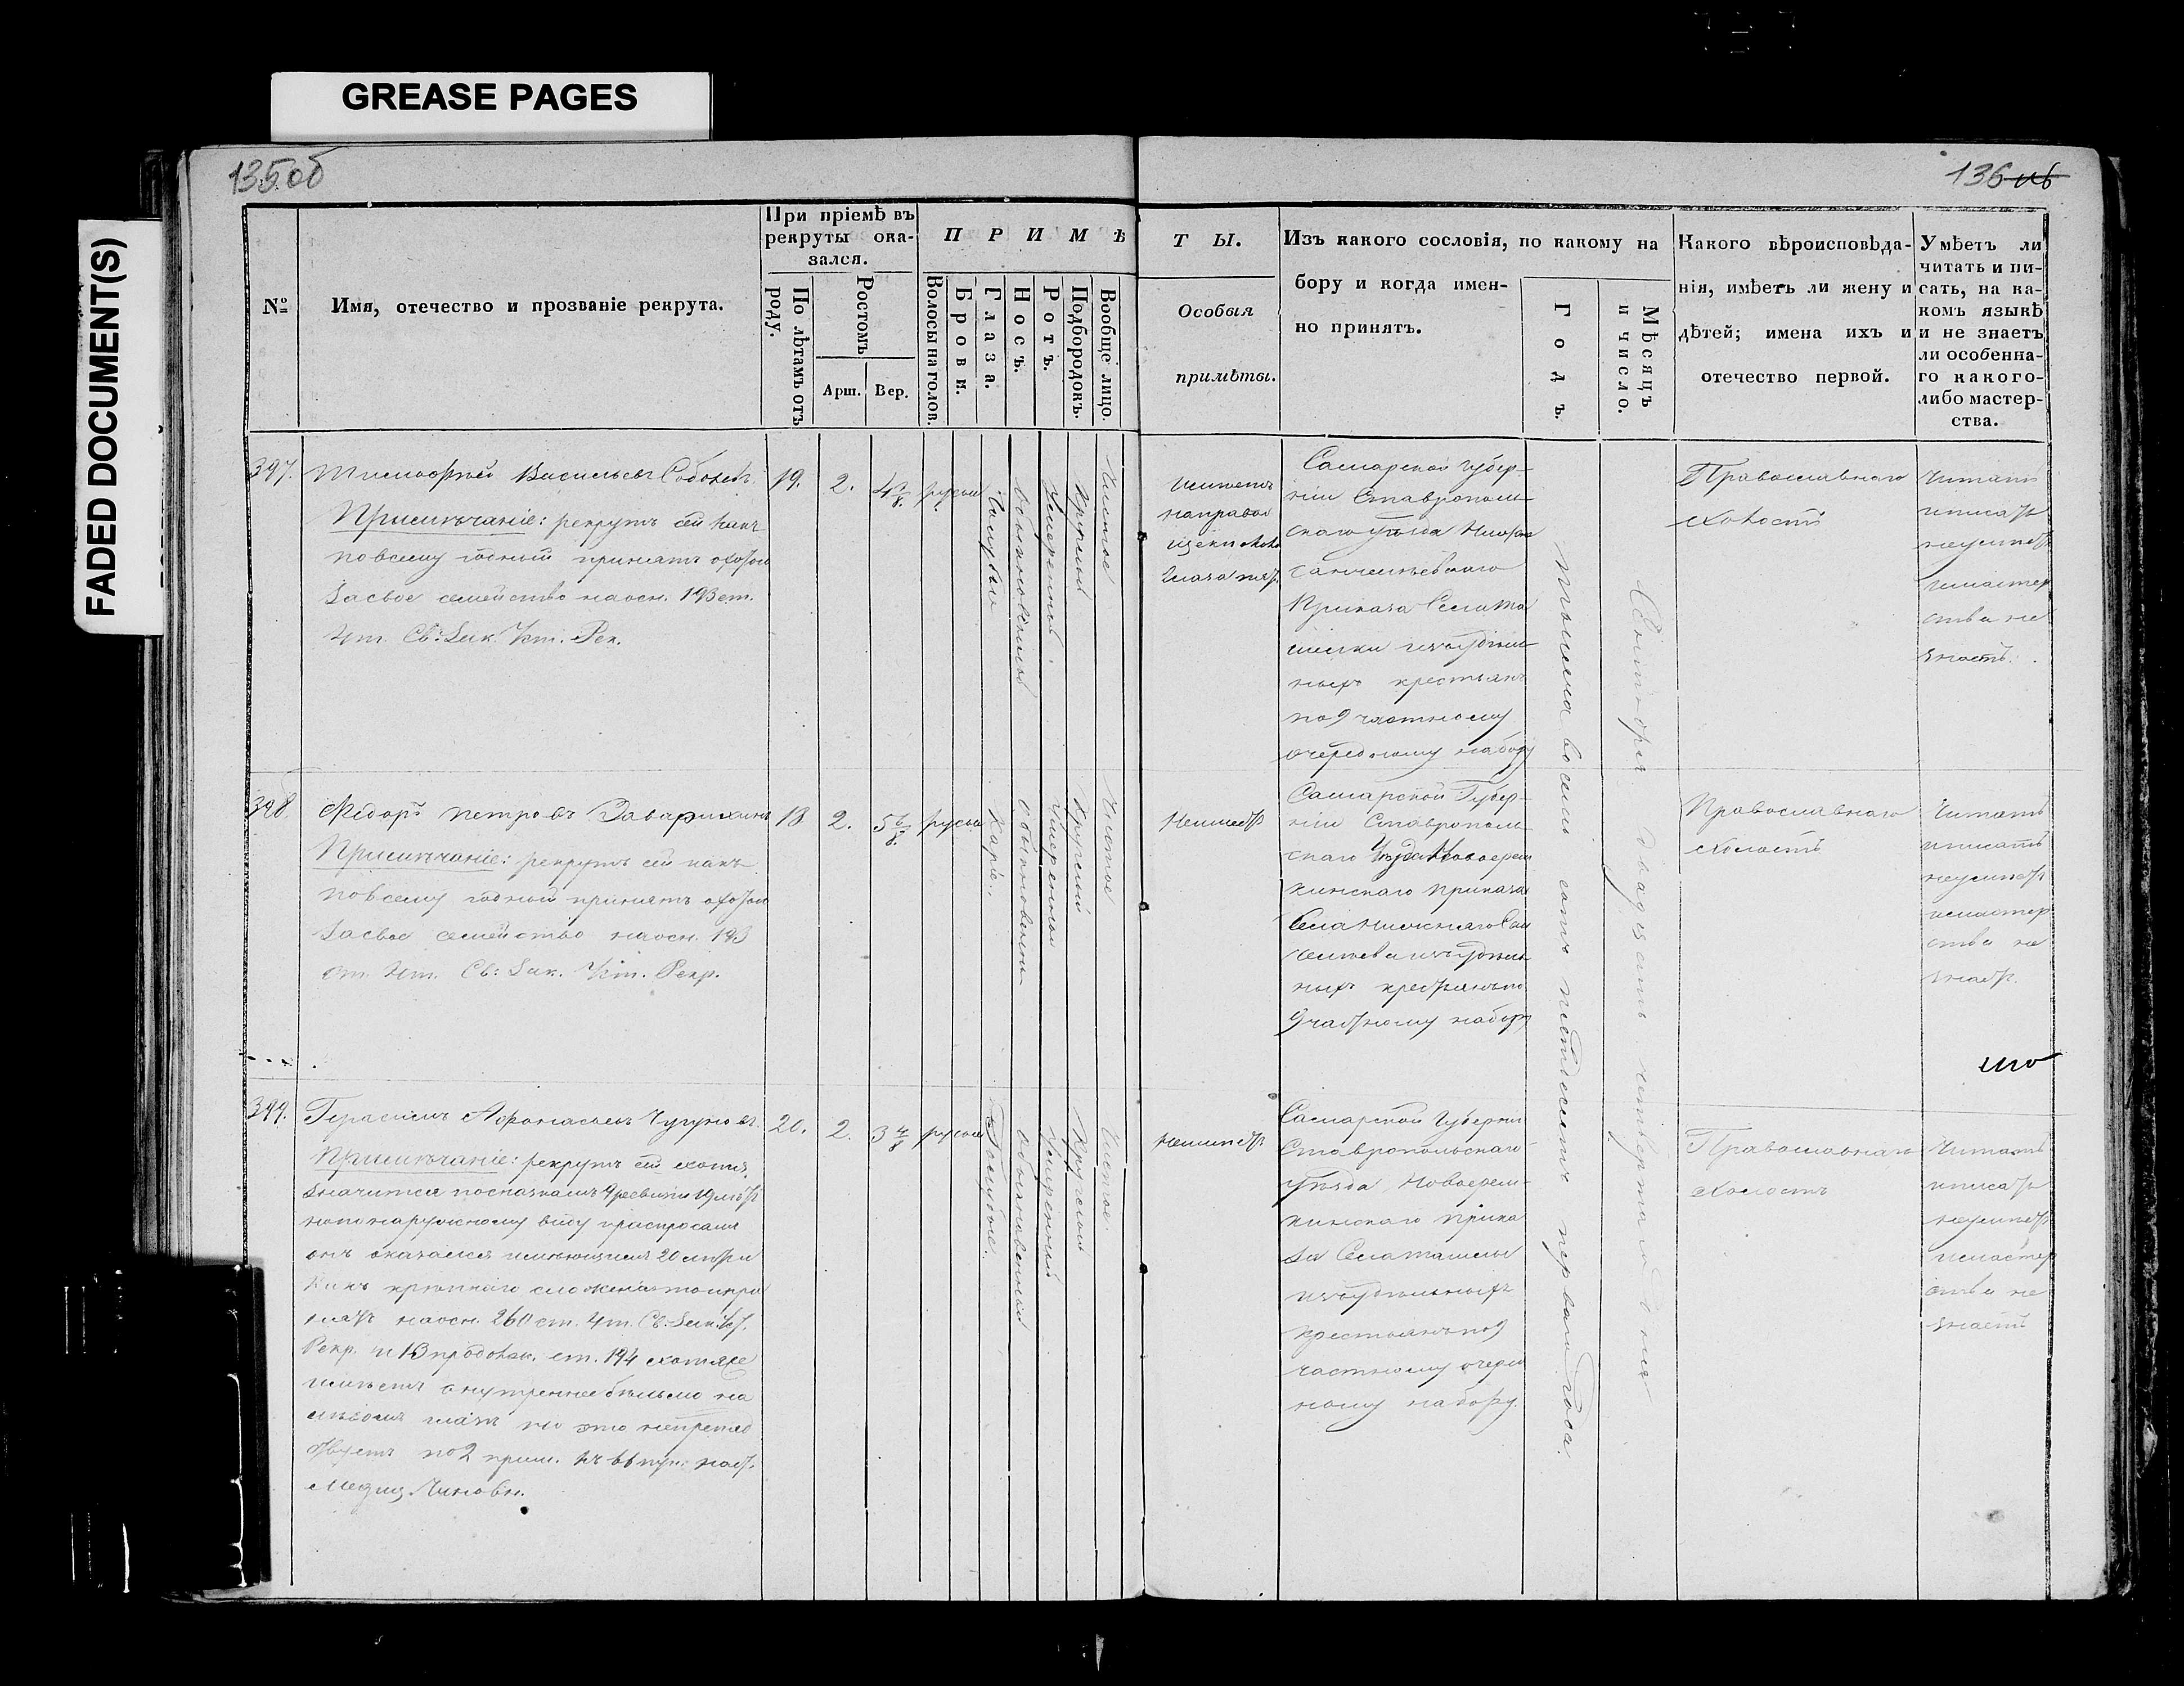 GREASE PAGES
FADED DOCUMENT(S)
135об
136 об
№
Имя, отечество и прозваніе рекрута.
При пріемѣ въ
рекруты ока-
зался.
По лѣтамъ отъ
роду.
Ростомъ
Арш.
Вер.
ПРИМѢ
Волосы на голов.
Брови.
Глаза.
Носъ.
Ротъ.
Подбородокъ.
Вообще лицо.
ТЫ.
Особыя
примѣты.
Изъ какого сословія, по какому на
бору и когда имен-
но принятъ.
Годъ.
Мѣсяцъ
и число.
Какого вѣроисповѣда-
нія, имѣетъ ли жену и
дѣтей; имена ихъ и
отечество первой.
Умѣетъ ли
читать и пи-
сать, на ка-
комъ языкѣ
и не знаетъ
ли особенна-
го какого-
либо мастер-
ства.
397.
Тимофей Васильевъ Соболевъ.
Примѣчаніе: рекрутъ сей какъ
по всему годный принятъ охотою
за свое семейство на осн. 193 ст.
4 т. Св: Зак. Уст. Рек.
19.
2.
4 7/8.
русыя
Голубые
обыкновенный
Умеренный
Круглый
Чистое
имѣетъ
на правой
щеки около
глаза
Самарской Губер-
ніи Ставрополь-
скаго уѣзда
Приказа Села
изъ удѣль-
ныхъ крестьянъ
по 9 частному
очередному набору
Тысяча восемь сотъ пятдесятъ перваго года.
Сентября двадцать четвертаго дня
Православнаго
холостъ
Читать
и писать
неумѣетъ
и мастер
ства не
знаетъ.
398.
Федоръ Петровъ Заварихинъ
Примѣчаніе: рекрутъ сей какъ
по всему годный принятъ охотою
за свое семейство на осн. 193
ст. 4 т. Св: Зак. Уст. Рекр.
18
2.
5 6/8.
русыя
Каріе.
обыкновенн
Умеренной
Круглый
Чистое
Неимеетъ
Самарской Губер-
ніи Ставрополь-
скаго Уѣзда Новоерем
кинскаго Приказа
Села Нижняго Сан
челеева изъ удѣль
ныхъ крестьянъ по
9 частному набору
Православнаго
холостъ
Читать
и писать
неумѣетъ
и мастер
ства не
знаетъ.
399.
Герасимъ Афонасьевъ Чугуновъ.
Примѣчаніе: рекрутъ сей хотя
значится по сказкамъ 9 ревизіи 19 лѣтъ
но по наружному виду и роспросамъ
онъ оказался имѣющимъ 20 лѣтъ и
какъ крѣпкаго сложенія то и при
нятъ на осн. 260 ст. 4 т. Св. Зак. Уст.
Рекр. и 13 продолж. ст. 194 хотя же
имѣетъ внутреннее бельмо на
лѣвомъ глазѣ но это непрепят
ствуетъ по 2 прим. къ пун: наст.
Медиц. Чиновн.
20.
2.
3 4/8
русыя
Голубые.
обыкновенный
Умеренный
Круглый
Чистое
Неимѣетъ
Самарской Губерніи
Ставропольскаго
уѣзда Новоерем-
кинскаго Прика
за Села Ташелы
изъ удѣльныхъ
крестьянъ по 9
частному очеред
ному набору.
Православнаго
холостъ
Читать
и писать
неумѣетъ
и мастер
ства не
знаетъ